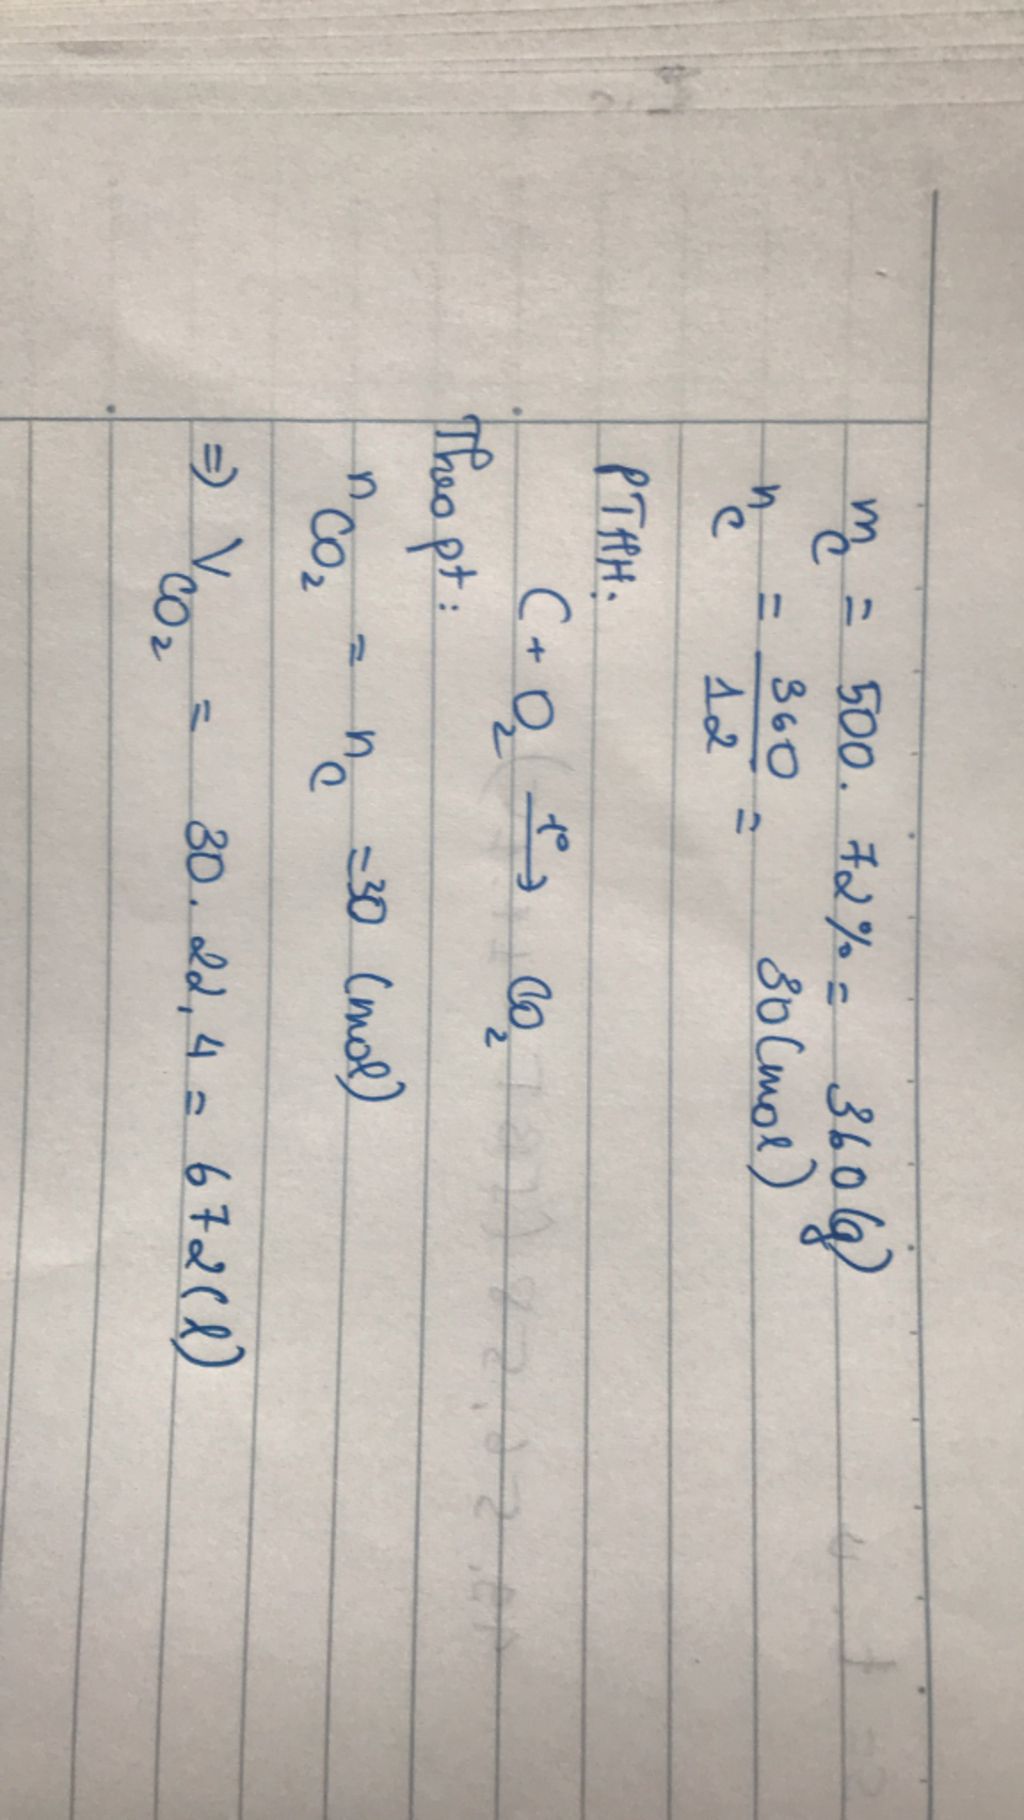 m_C = 500. 72% = 360 (g)
n_C = 360/12 = 30 (mol)
PTHH:
C + O₂ t°→ CO₂
Theo pt:
n_CO₂ = n_C = 30 (mol)
=) V_CO₂ = 30. 22,4 = 672 (l)